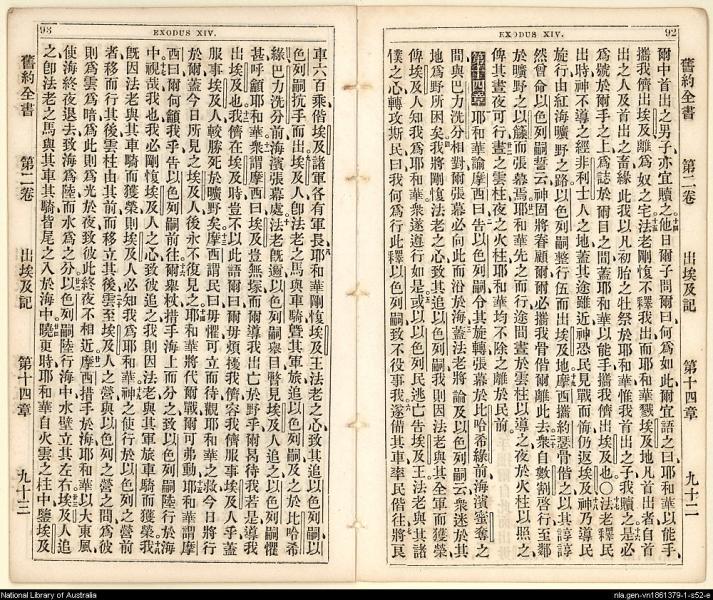 92
EXODUS XIV.
舊約全書 第二卷 出埃及記 第十四章 九十二
爾中首出之男子亦宜贖之他日爾子問爾曰何爲如此爾宜語之曰耶和華以能手
攜我儕出埃及離爲奴之宅法老剛愎不釋我出而耶和華戮埃及地凡首出者自首
出之人及首出之畜緣此我以凡初胎之牡祭於耶和華惟我首出之子我贖之是必
爲號於爾手之上爲誌於爾目之間蓋耶和華以能手攜我儕出埃及也〇法老釋民
出時神不導之經非利士人之地蓋其途雖近神恐民見戰而悔仍返埃及神乃導民
旋行由紅海曠野之路以色列嗣整行伍而出埃及地摩西攜約瑟骨偕之以其諄諄
然曾命以色列嗣誓云神固將眷顧爾爾必攜我骨偕爾離此去衆自數割啓行至鄰
於曠野之以籐而張幕焉耶和華先之而行途間晝於雲柱以導之夜於火柱以照之
俾其晝夜可行晝之雲柱夜之火柱耶和華均不除之離於民前
第十四章 耶和華諭摩西曰告以色列嗣令其旋轉張幕於比哈希綠前海濱蜜奪之
間與巴力洗分相對爾張幕必向此而沿於海蓋法老將論及以色列嗣云衆迷於其
地爲野所困矣我將剛愎法老之心致其追以色列嗣我則因法老與其全軍而獲榮
俾埃及人知我爲耶和華衆遂遵行如是或以以色列民逃亡告埃及王法老與其諸
僕之心轉攻斯民曰我何爲行此釋以色列嗣致不役事我遂備其車率民偕往將良
93
EXODUS XIV.
舊約全書 第二卷 出埃及記 第十四章 九十三
車六百乘偕埃及諸軍各有軍長耶和華剛愎埃及王法老之心致其追以色列嗣以
色列嗣抗手而出埃及人卽法老之馬與車騎曁其軍旅追以色列嗣及之於比哈希
綠巴力洗分前海濱張幕處法老旣邇以色列嗣舉目瞥見埃及人追之以色列嗣懼
甚呼籲耶和華衆謂摩西曰埃及豈無塚而爾導我出亡於野乎爾曷待我若是導我
出埃及也我儕在埃及時豈不以此語爾曰爾毋煩擾我儕容我儕服事埃及人乎蓋
服事埃及人較勝死於曠野矣摩西謂民曰毋懼可立而待觀耶和華之救今日將行
於爾蓋今日所見之埃及人後永不復見之耶和華將代爾戰爾可弗動耶和華謂摩
西曰爾何籲我乎告以色列嗣前往爾舉杖措手海上而分之致以色列嗣陸行於海
中視哉我也我必剛愎埃及人之心致彼追之我則因法老與其軍旅車騎而獲榮我
旣因法老與其車騎而獲榮則埃及人必知我爲耶和華神之使行於以色列之營前
者移而行其後雲柱由其前而移立其後雲至埃及人之營與以色列之營之間爲彼
則爲雲爲暗爲此則爲光於夜致彼此終夜不相近摩西措手於海耶和華以大東風
使海終夜退去致海爲陸而水爲之分以色列嗣陸行海中水壁立其左右埃及人追
之卽法老之馬與其車其騎皆尾之入於海中曉更時耶和華自火雲之柱中鑒埃及
National Library of Australia
nla.gen-vn1861379-1-s52-e